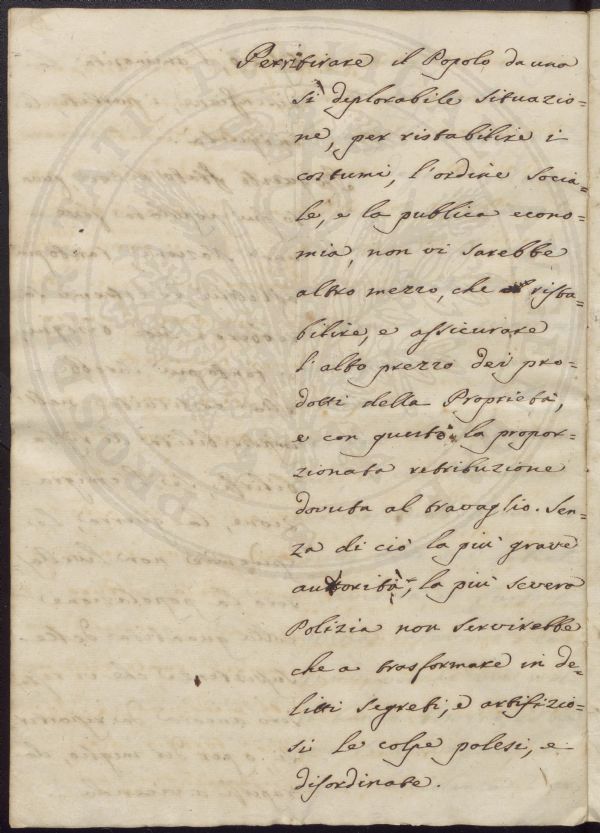 Per ritirare il Popolo da una
sì deplorabile situazio=
ne, per ristabilire i
costumi, l'ordine socia=
le, e la publica econo=
mia, non vi sarebbe
altro mezzo, che rista=
bilire, e assicurare
l'alto prezzo dei pro=
dotti della Proprietà,
e con questo la propor=
zionata retribuzione
dovuta al travaglio. Sen=
za di ciò la più grave
autorità, la più severa
Polizia non servirebbe
che a trasformare in de=
litti segreti, e artifizio=
si le colpe palesi, e
disordinate.